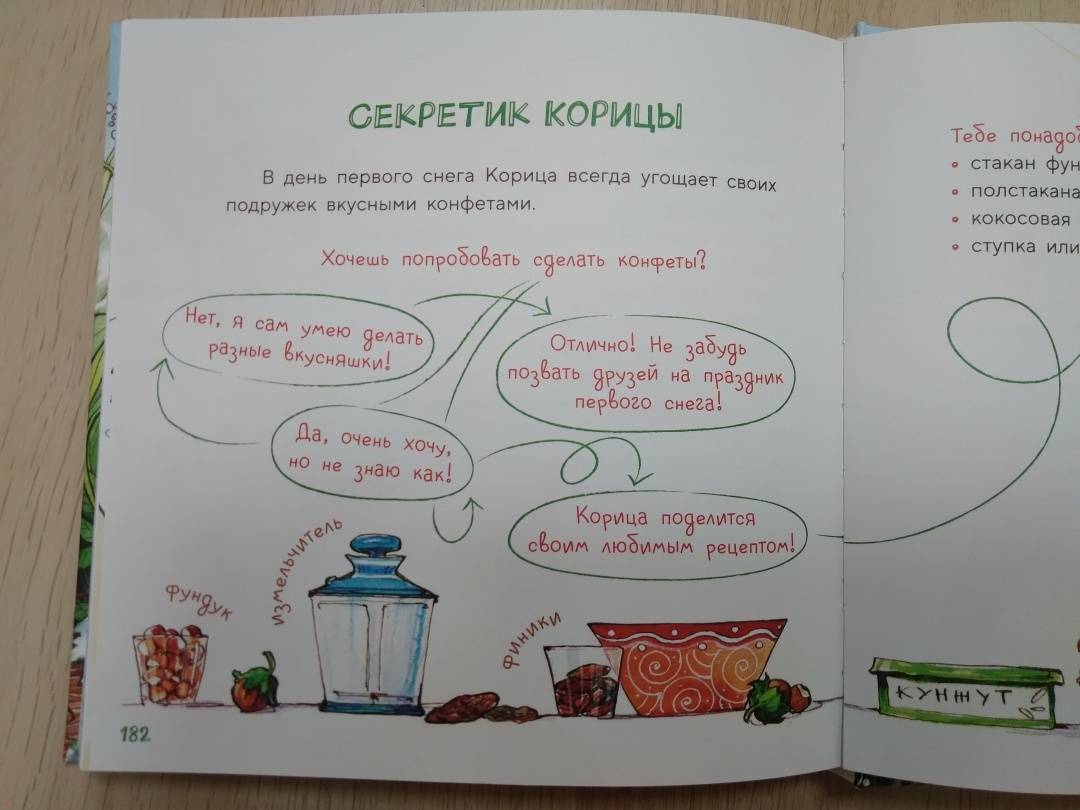 СЕКРЕТИК КОРИЦЫ
В день первого снега Корица всегда угощает своих
подружек вкусными конфетами.
Хочешь попробовать сделать конфеты?
Нет, я сам умею делать
разные вкусняшки!
Отлично! Не забудь
позвать друзей на праздник
первого снега!
Да, очень хочу,
но не знаю как!
Корица поделится
своим любимым рецептом!
фундук
измельчитель
финики
182
Тебе
• стакан
• полстакана
• кокосовая
• ступка или
КУНЖУТ